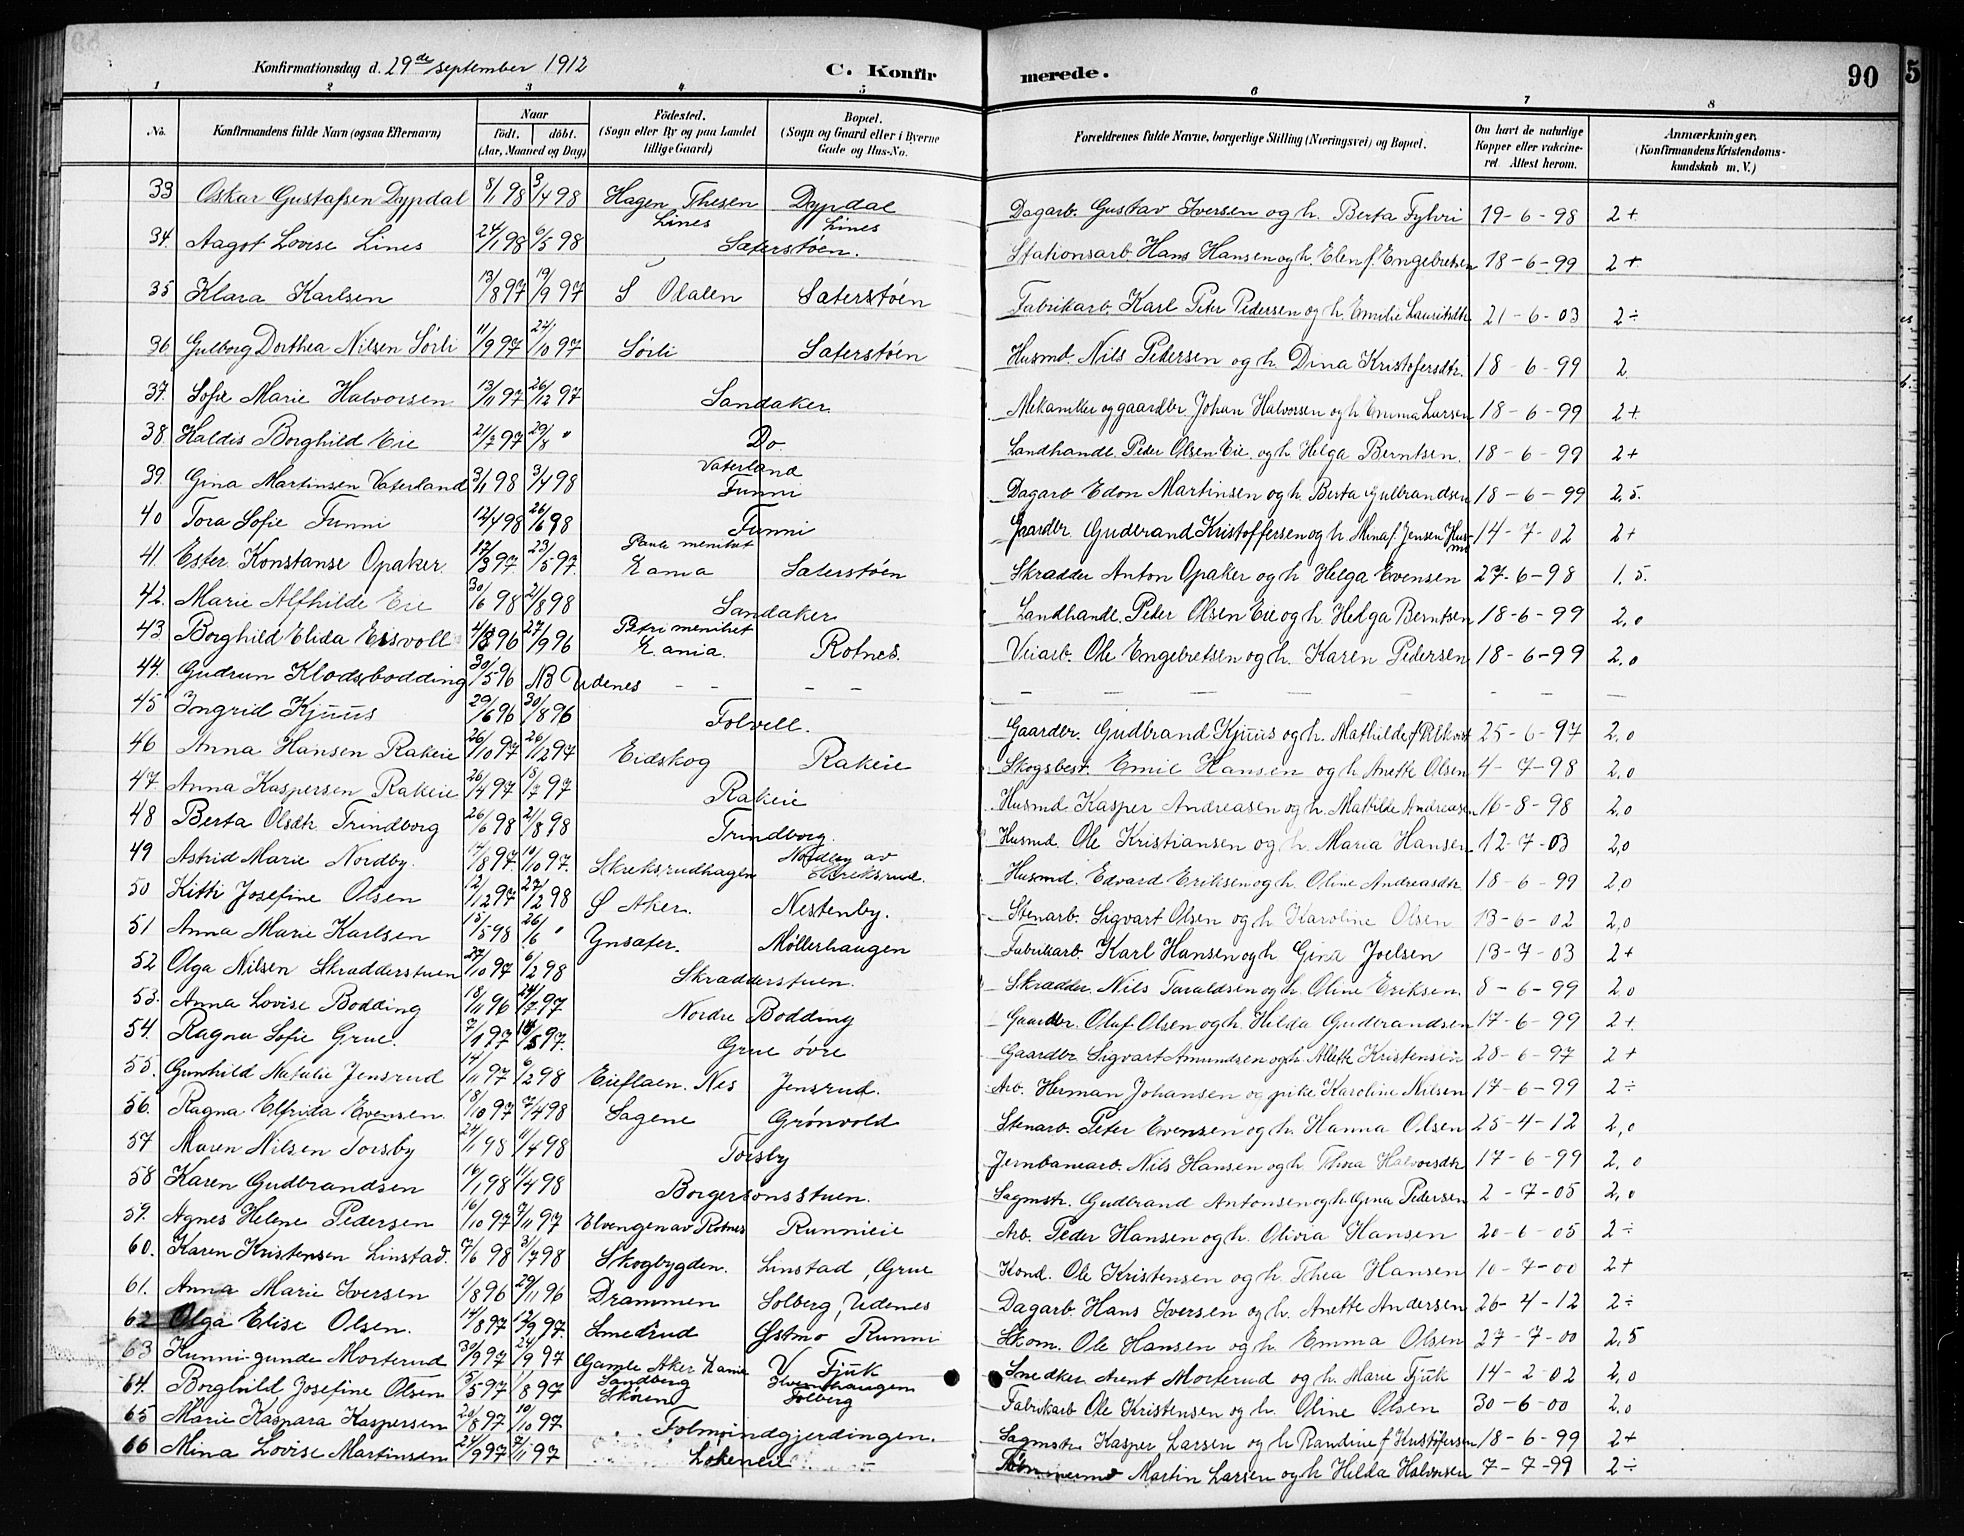 Konfirmationsdag d. 29de september 1912 C. Konfir merede. 90
1 2 3 4 5 6 7 8
No. Konfirmandens fulde Navn (ogsaa Efternavn) Naar født, døbt. (Aar, Maaned og Dag) Fødested. (Sogn eller By og paa Landet tillige Gaard) Bopæl. (Sogn og Gaard eller i Byerne Gade og Hus-No. Forældrenes fulde Navne, borgerlige Stilling (Næringsvei) og Bopæl. Om havt de naturlige Kopper eller vakcineret. Attest herom. Anmærkninger. (Konfirmandens Kristendomskundskab m. V.)
33 Oskar Gustafsen Dypdal 8/1 98 3/4 98 Hagen Thesen Dypdal Dagarb. Gustav Iversen og h. Berta Fylvri 19-6-98 2+
34. Aagot Lovise Lines 24/1 98 6/5 98 Lines Lines Saterstøen. Stationsarb. Hans Hansen og h. Elen f. Engebretsen 18-6-99 2+
35 Klara Karlsen 13/8 97 19/9 97 S Odalen Saterstøen Fabrikarb. Karl Peter Pedersen og h. Emilie Lauritsdtr 21-6-03 2÷
36. Gulborg Dorthea Nilsen Sørli 11/9 97 24/10 97 Sørli Saterstøen Husmd. Nils Pedersen og h. Dina Kristofersdtr. 18-6-99 2
37. Sofie Marie Halvorsen 13/11 97 26/12 97 Sandaker Mekaniker og gaardbr Johan Halvorsen og h Emma Larsen 18-6-99 2+
38. Haldis Borghild Eie 21/7 97 29/8 " Do. Landhandl. Peder Olsen Eie og h Helga Berntsen. 18-6-99 2+
39. Gina Martinsen Vaterland 3/1 98 3/4 98 Vaterland Funni Dagarb Edon Martinsen og h. Berta Gulbrandsen 18-6-99 2,5.
40 Tora Sofie Funni 12/4 98 26/6 98 Funni Gaardbr Gudbrand Kristoffersen og h Mina f. Jensen 14-7-02 2+
41. Ester Konstanse Opaker 17/3 97 23/5 97. Pauls menihet Kania Saterstøen Skrædder Anton Opaker og h Helga Evensen 27-6-98 1,5.
42. Marie Alfhilde Eie 30/6 98 21/8 98 Sandaker Landhandl. Peder Olsen Eie og h Helga Berntsen 18-6-99 2,0
43 Borghild Elida Eisvoll 96 27/9 96 Petri menihet Kania. Rotnes. Veiarb. Ole Engebretsen og h. Karen Pedersen 18-6-99 2,0
44. Gudrun Klodsbodding 30/5 96 NB Udenes - - - - - - - - - - -
45 Ingrid Kjuus 29/6 96 30/8 96 Folvell. Gaardbr. Gudbrand Kjuus og h. Mathilde f. 25-6-97 2,0
46 Anna Hansen Rakeie 26/10 97 26/12 97 Eidskog Rakeie Skogsbest. Emil Hansen og h Anette Olsen 4-7-98 2,0
47. Anna Kaspersen Rakeie 26/4 97 15/7 97 Rakeie Husmd Kasper Andreasen og h. Mathilde Andreasen 16-8-98 2,0
48 Berta Olsdtr Trindborg 26/6 98 21/8 98 Trindborg. Husmd. Ole Kristiansen og h Maria Hansen 12-7-03 2,0
49 Astrid Marie Nordby. 14/8 97. 10/10 97. Skreksrudhagen Nordby av Skreksrud. Husmd. Edvard Eriksen og h. Oline Andreasdtr 18-6-99 2,0
50 Kitti Josefine Olsen 12/12 97 27/2 98 S Aker. Nestenby. Stenarb. Sigvart Olsen og h Karoline Olsen 13-6-02 2,0
51 Anna Marie Karlsen 15/5 98 26/6 " Ynsater. Møllerhaugen Fabrikarb. Karl Hansen og h Gina Joelsen 13-7-03 2+
52 Olga Nilsen Skradderstuen 27/10 97 6/2 98 Skradderstuen. Skrædder. Nils Taraldsen og h Oline Eriksen. 8-6-99 2,0
53. Anna Lovise Bodding 18/11 96 24/7 97 Nordre Bodding Gaardbr. Oluf Olsen og h. Hilda Gudbrandsen 17-6-99 2+
54. Ragna Sofie Grue. 7/1 97 18/5 97. Grue øvre Gaardbr Sigvart Amundsen og h. Allette Kristensen 28-6-97 2+
55. Gunhild Natalie Jensrud 14/11 97 6/2 98 Eieflaen. Nes Jensrud. Arb. Herman Johansen og pike Karoline Nilsen 17-6-99 2÷
56. Ragna Elfrida Evensen 18/10 97 7/4 98 Sagene Grønvold Stenarb. Peter Evensen og h. Hanna Olsen 25-4-12 2,0
57 Maren Nilsen Torsby 24/1 98 11/4 98 Torsby Jernbanearb. Nils Hansen og h Thora Halvorsdtr 17-6-99 2,0
58 Karen Gudbrandsen 16/1 98 11/4 98 Borgersonsstuen. Sagmstr. Gudbrand Antonsen og h. Gina Pedersen 2-7-05 2,0
59. Agnes Helene Pedersen 16/10 97 7/11 97 Elvengen av Rotnes Runnieie Arb. Peder Hansen og h. Olivia Hansen 20-6-05 2÷
60. Karen Kristensen Linstad. 7/6 98 31/7 98 Skogbygden. Linstad, Grue Kond. Ole Kristensen og h. Thea Hansen 10-7-00 2+
61. Anna Marie Iversen 1/8 96 29/11 96 Drammen Solberg, Udenes Dagarb Hans Iversen og h. Anette Andersen 26-4-12 2÷
62 Olga Elise Olsen. 14/8 97 12/9 97. Smedrud Østmo Runni Skom. Ole Hansen og h. Emma Olsen 27-7-00 2,5
63 Kunni-gunde Morterud 30/9 97 24/9 97 Gamle Aker Kania V Fjuk Snedker Arent Morterud og h. Marie Fjuk 14-2-02 2,0
64. Borghild Josefine Olsen 15/5 97 1/8 97 Sandberg Skøien Folberg Fabrikarb Ole Kristensen og h. Oline Olsen 30-6-00 2,0
65 Marie Kaspara Kaspersen 20/8 97 10/10 97 Folmoindgjerdingen. Sagmstr. Kasper Larsen og h Randine f Kristofersen 18-6-99 2+
66 Mina Lovise Martinsen 24/9 97 7/11 97 Lokeneie Martin Larsen og h Hilda Halvorsen 7-7-99 2÷